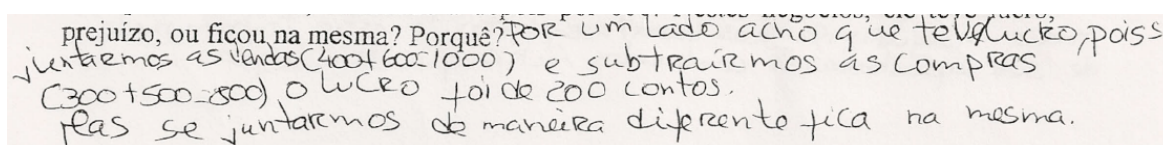 prejuízo, ou ficou na mesma? Porquê? POR um lado acho que teve lucro, pois s
juntarmos as vendas (400+600=1000) e subtrairmos as compras
(300+500=800) o lucro foi de 200 contos.
Mas se juntarmos de maneira diferente fica na mesma.